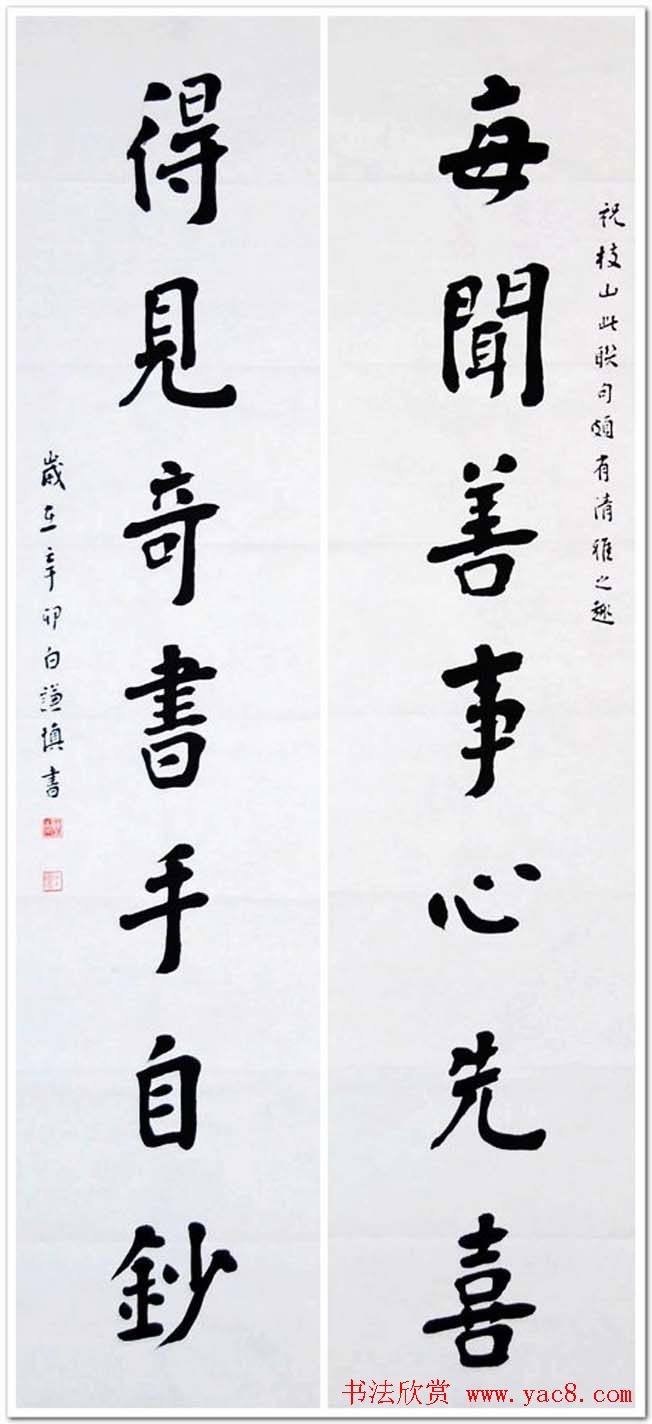 每聞善事心先喜
祝枝山此联句頗有清雅之趣
得見奇書手自鈔
歲在辛卯白謙慎書
书法欣赏 www.yac8.com